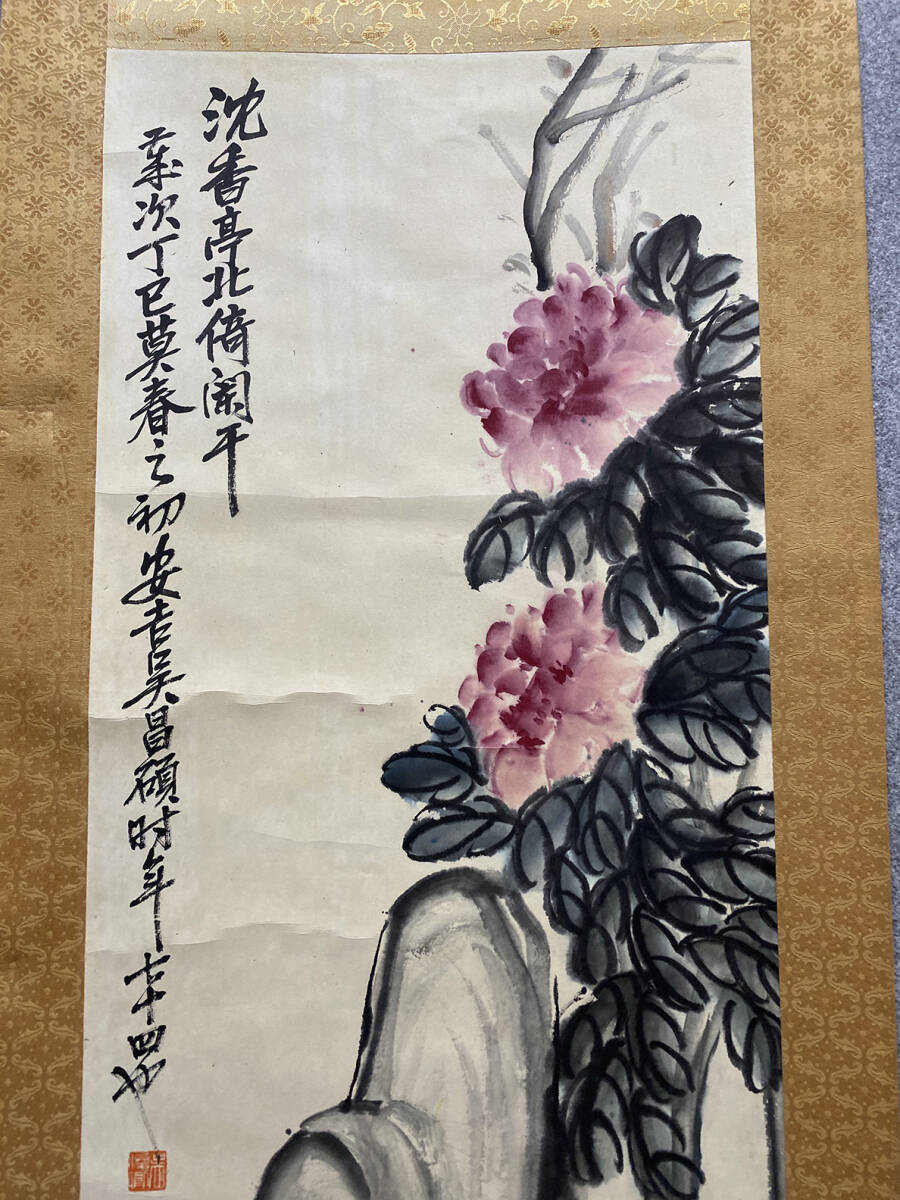 沈香亭北倚闌干
歲次丁巳莫春之初安吉吳昌碩時年七十四也